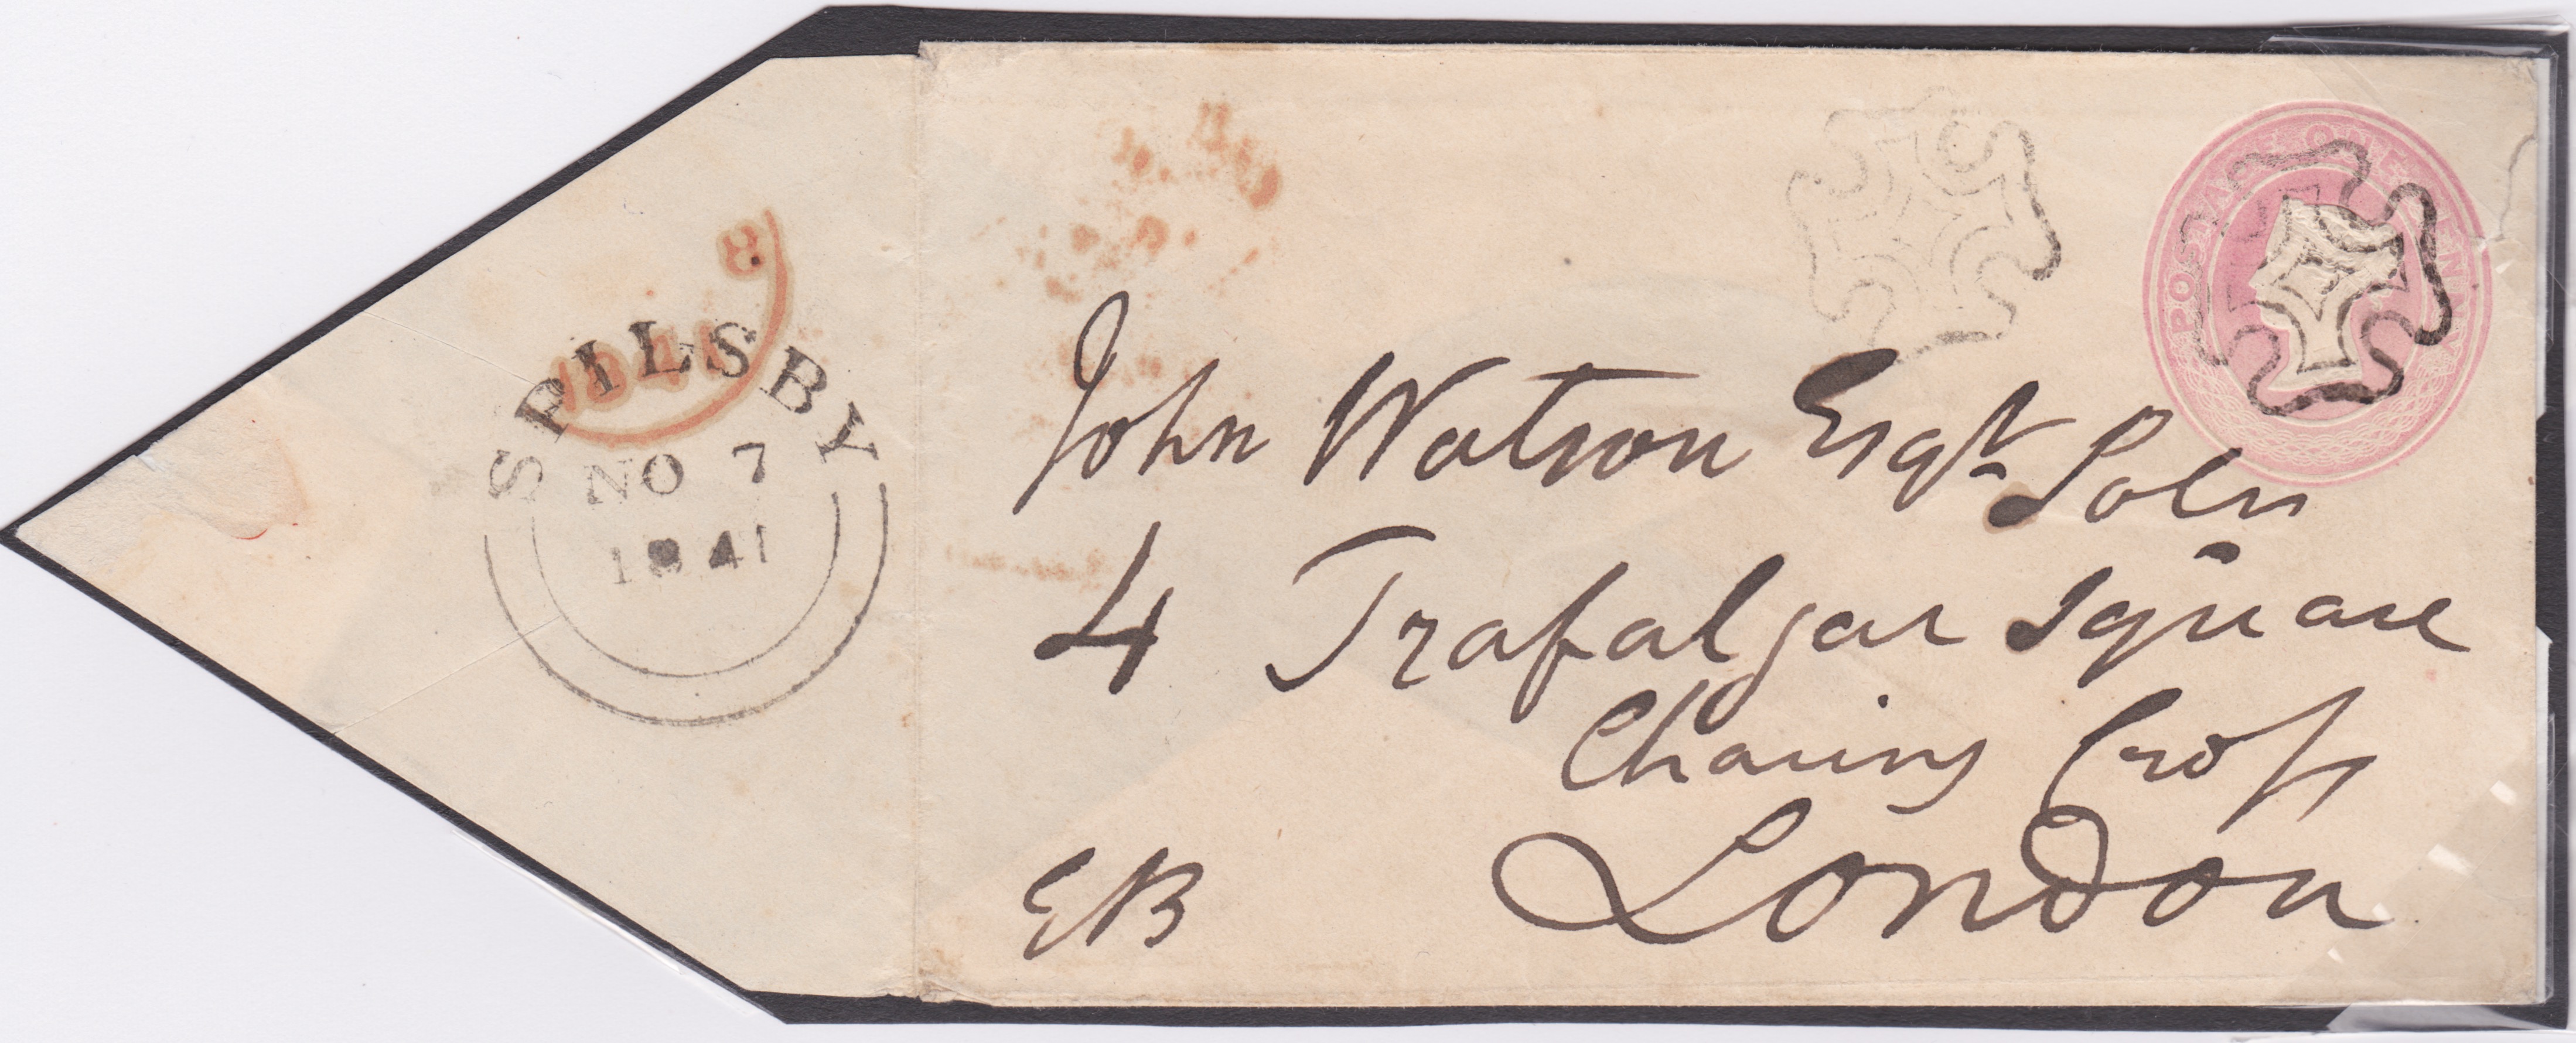 POSTAGE ONE PENNY
John Watson Esqr. Solr
4 Trafalgar Square
Charing Cross
London
EB
SPILSBY
NO 7
1841
8
1841